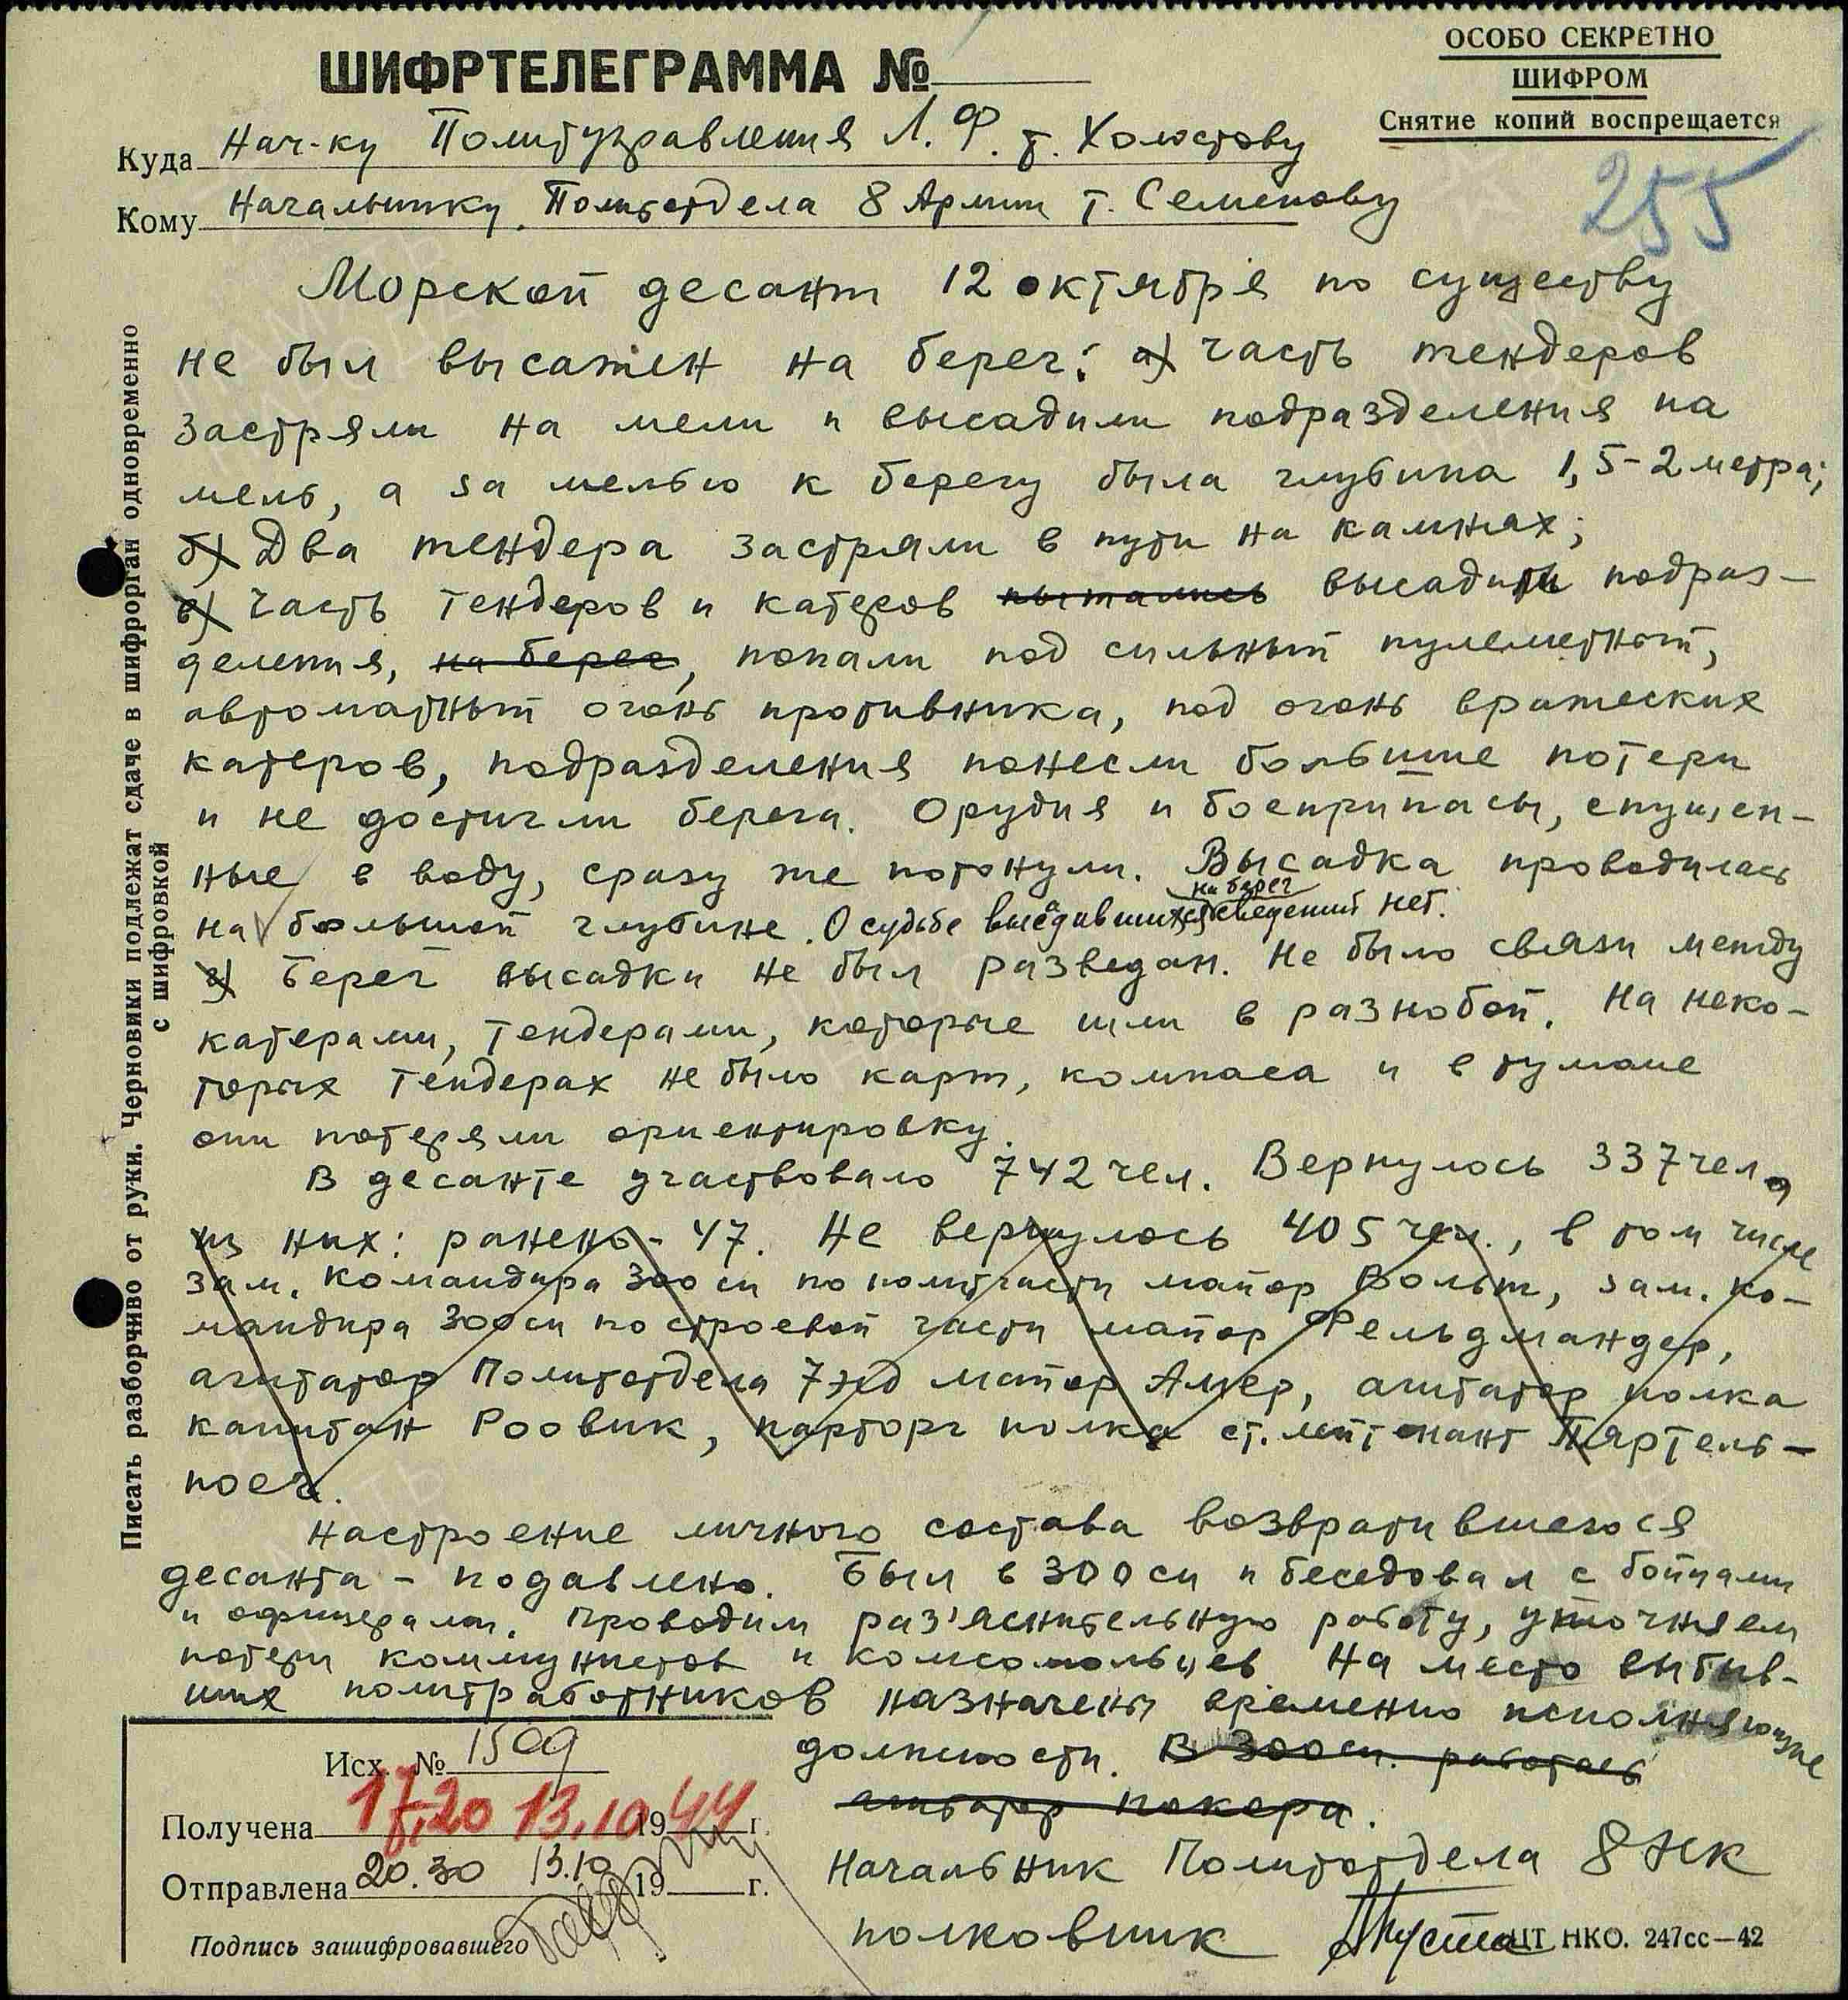 ОСОБО СЕКРЕТНО
ШИФРОМ
Снятие копий воспрещается
ШИФРТЕЛЕГРАММА №
255
Куда Нач-ку Политуправления Л.Ф. т. Холостову
Кому Начальнику Политотдела 8 Армии т. Семенову
Морской десант 12 октября по существу
не был высажен на берег: а) часть тендеров
застряли на мели и высадили подразделения на
мель, а за мелью к берегу была глубина 1,5-2 метра;
б) Два тендера застряли в пути на камнях;
в) Часть тендеров и катеров пытались высадить подраз-
деления, на берег, попали под сильный пулеметный,
автоматный огонь противника, под огонь вражеских
катеров, подразделения понесли большие потери
и не достигли берега. Орудия и боеприпасы, спущен-
ные в воду, сразу же потонули. Высадка проводилась
на большой глубине. О судьбе высадившихся на берег сведений нет.
г) Берег высадки не был разведан. Не было связи между
катерами, тендерами, которые шли в разнобой. На неко-
торых тендерах не было карт, компаса и в тумане
они потеряли ориентировку.
В десанте участвовало 742 чел. Вернулось 337 чел,
из них: ранено - 47. Не вернулось 405 чел., в том числе
зам. командира 300 сп по политчасти майор Вольт, зам. ко-
мандира 300 сп по строевой части майор Фельдмандер,
агитатор Политотдела 7 эсд майор Амер, агитатор полка
капитан Роовик, парторг полка ст. лейтенант Пяртель-
поег.
Настроение личного состава возвратившегося
десанта - подавлено. Был в 300 сп и беседовал с бойцами
и офицерами. Проводим раз'яснительную работу, уточняем
потери коммунистов и комсомольцев. На место выбыв-
ших политработников назначены временно исполняющие
должности. В 300 сп. работает
агитатор покора.
Начальник Политотдела 8 эск
полковник
Исх. № 1509
Получена 17.20 13.10 1944 г.
Отправлена 20.30 13.10 19 г.
Подпись зашифровавшего
ЦТ НКО. 247сс—42
Писать разборчиво от руки. Черновики подлежат сдаче в шифрорган одновременно
с шифровкой